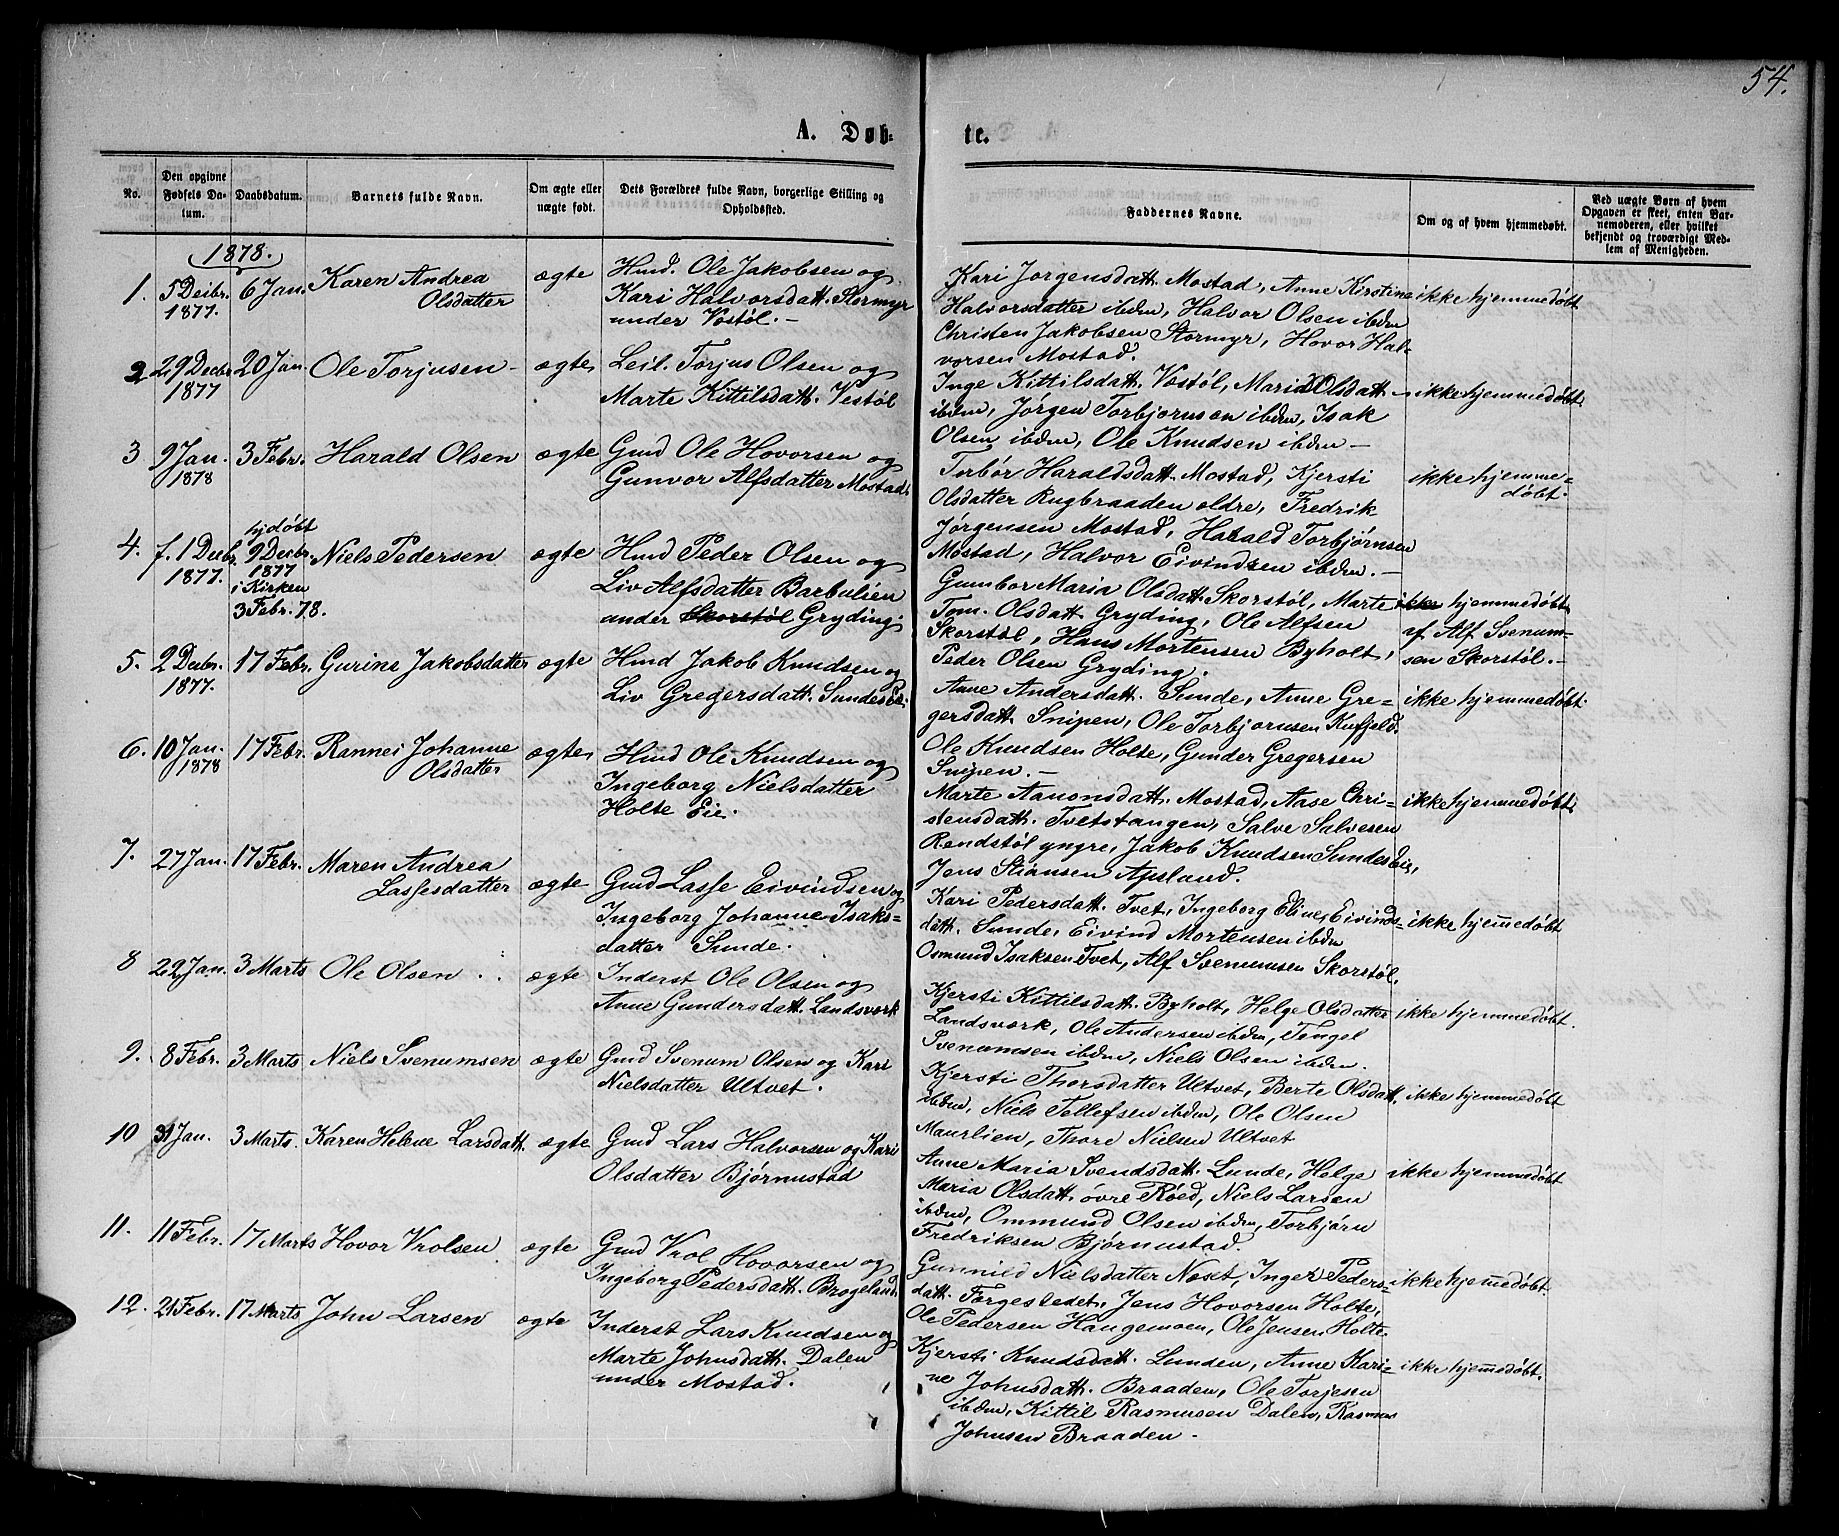 54.
A. Døb- te.
No.
Den opgivne Fødsels Datum.
Daabsdatum.
Barnets fulde Navn.
Om ægte eller uægte født.
Dets Forældres fulde Navn, borgerlige Stilling og Opholdssted.
Faddernes Navne.
Om og af hvem hjemmedøbt.
Ved uægte Børn af hvem Opgaven er skeet, enten Barnemoderen, eller hvilket bekjendt og troværdigt Medlem af Menigheden.
1878.
1. 5 Decbr. 1877. 6 Jan. Karen Andrea Olsdatter ægte
Hmd. Ole Jakobsen og
Kari Halvorsdatt. Stormyr
under Vestøl. –
Kari Jørgensdatt. Mostad, Anne Kirstine
Halvorsdatter ibdm, Halvor Olsen ibdm
Christen Jakobsen Stormyr, Hovor Hal-
vorsen Mostad.
ikke hjemmedøbt
2 29 Decbr 1877 20 Jan. Ole Torjusen ægte
Leil. Torjus Olsen og
Marte Kittilsdatt. Vestøl
Inge Kittilsdatt. Vestøl, Maria Olsdatt.
ibdm, Jørgen Torbjørnsen ibdm, Isak
Olsen ibdm, Ole Knudsen ibdm –
ikke hjemmedøbt.
3 9 Jan. 1878 3 Febr. Harald Olsen ægte
Gmd Ole Hovorsen og
Gunvor Alfsdatter Mostad.
Torbør Haraldsdatt. Mostad, Kjersti
Olsdatter Rugbraaden ældre, Fredrik
Jørgensen Mostad, Harald Torbjørnsen
Mostad, Halvor Eivindsen ibdm. –
ikke hjemme-
døbt.
4. f. 1 Decbr. 1877. hjdøbt 9 Decbr. 1877 i Kirken 3 Febr. 78. Niels Pedersen ægte
Hmd Peder Olsen og
Liv Alfsdatter Barbulien
under Skorstøl Gryding.
Gumbor Maria Olsdatt. Skorstøl, Marte
Tom. Olsdatt. Gryding, Ole Alfsen
Skorstøl, Hans Mortensen Byholt,
Peder Olsen Gryding.
ikke hjemmedøbt
af Alf Svenum-
sen Skorstøl. –
5. 2 Decbr. 1877. 17 Febr. Gurine Jakobsdatter ægte
Hmd Jakob Knudsen og
Liv Gregersdatt. Sundes Eie.
Anne Andersdatt. Sunde, Anne Gre-
gersdatt. Snipen, Ole Torbjørnsen
Ole Knudsen Holte, Gunder Gregersen
Snipen. –
ikke hjemmedøbt.
6. 10 Jan. 1878 17 Febr. Rannei Johanne Olsdatter ægte
Hmd Ole Knudsen og
Ingeborg Nielsdatter
Holte Eie.
Marte Aanonsdatt. Mostad, Aase Chri-
stensdatt. Tvetstangen, Salve Salvesen
Rendstøl yngre, Jakob Knudsen Sundes Eie,
Jens Stiansen Apsland.
ikke hjemmedøbt.
7. 27 Jan. 17 Febr. Maren Andrea Lassesdatter ægte
Gmd Lasse Eivindsen og
Ingeborg Johanne Isaks-
datter Sunde.
Kari Pedersdatt. Tvet, Ingeborg Eline Eivinds-
datt. Sunde, Eivind Mortensen ibdm
Osmund Isaksen Tvet, Alf Svenumsen Skorstøl.
ikke hjemmedøbt
8 22 Jan. 3 Marts Ole Olsen ægte
Inderst Ole Olsen og
Anne Gundersdatt. Landsverk
Kjersti Kittilsdatt. Byholt, Helge Olsdatter
Landsverk, Ole Andersen ibdm, Tengel
Svenumsen ibdm, Niels Olsen ibdm.
ikke hjemmedøbt.
9. 8 Febr. 3 Marts Niels Svenumsen ægte
Gmd Svenum Olsen og Kari
Nielsdatter Ultvet.
Kjersti Thorsdatter Ultvet, Berte Olsdatt.
ibdm, Niels Tellefsen ibdm, Ole Olsen
Maurlien, Thore Nielsen Ultvet
ikke hjemmedøbt
10 31 Jan. 3 Marts. Karen Helene Larsdatt. ægte
Gmd Lars Halvorsen og Kari
Olsdatter Bjørnustad
Anne Maria Svendsdatt. Lunde, Helge
Maria Olsdatt. øvre Røed, Niels Larsen
ibdm, Ommund Olsen ibdm, Torbjørn
Fredriksen Bjørnustad.
ikke hjemmedøbt
11. 11 Febr. 17 Marts Hovor Vrolsen ægte
Gmd Vrol Hovorsen og
Ingeborg Pedersdatt. Brogeland
Gunnild Nielsdatter Neset, Inger Peders-
datt. Førgestedet, Jens Hovorsen Holte,
Ole Pedersen Haugemoen, Ole Jensen Holte.
ikke hjemmedøbt.
12. 21 Febr. 17 Marts John Larsen ægte
Inderst Lars Knudsen og
Marte Johnsdatt. Dalen
under Mostad.
Kjersti Knudsdatt. Lunden, Anne Kari-
ne Johnsdatt. Braaden, Ole Torjesen
ibdm, Kittil Rasmusen Dalen, Rasmus
Johnsen Braaden –
ikke hjemmedøbt.